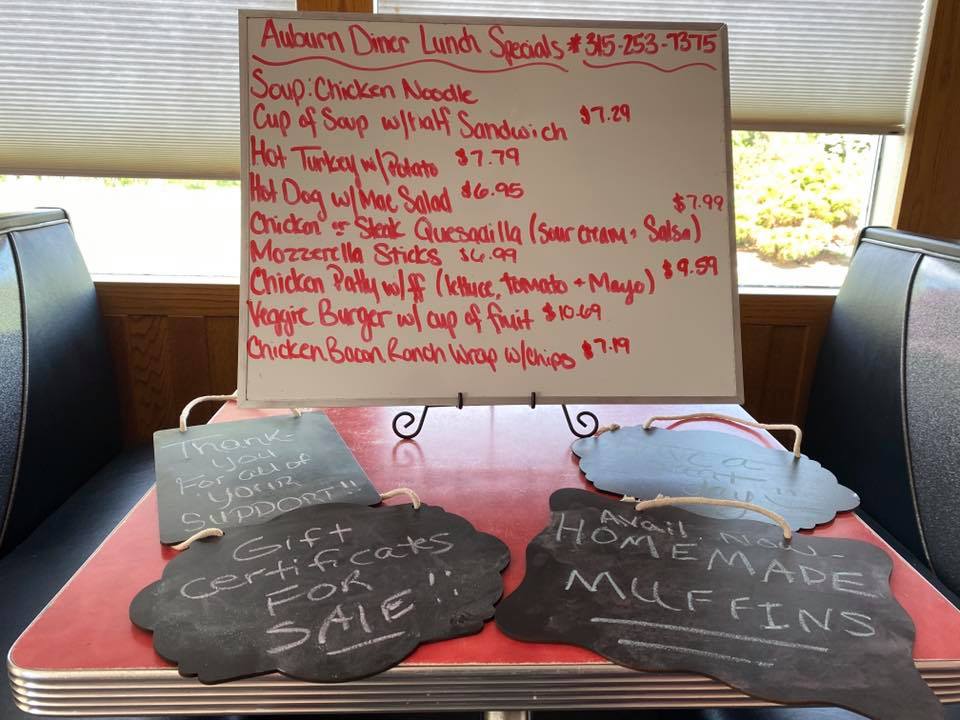 Auburn Diner Lunch Specials # 315-253-7375
Soup: Chicken Noodle
Cup of Soup w/half Sandwich $7.29
Hot Turkey w/Potato $7.79
Hot Dog w/ Mac Salad $6.95
Chicken or Steak Quesadilla (sour cream + Salsa) $7.99
Mozzerella Sticks $6.99
Chicken Patty w/ff (lettuce, tomato + Mayo) $9.59
Veggie Burger w/ cup of fruit $10.69
Chicken Bacon Ranch Wrap w/chips $7.19
Thank-
you
For all of
your
SUPPORT!!
Gift
certificates
FOR
SALE!!
Avail. Now-
HOMEMADE
MUFFINS